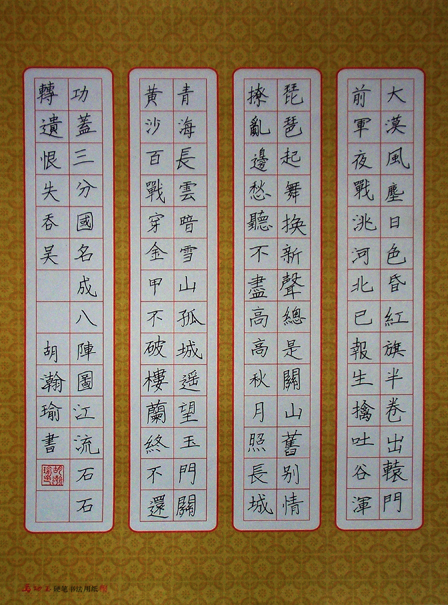 大漠風塵日色昏紅旗半卷出轅門
前軍夜戰洮河北已報生擒吐谷渾
琵琶起舞換新聲總是關山舊别情
撩亂邊愁聽不盡高高秋月照長城
青海長雲暗雪山孤城遥望玉門關
黄沙百戰穿金甲不破樓蘭終不還
功蓋三分國名成八陣圖江流石石
轉遺恨失吞吴 胡瀚瑜書
硬笔书法用纸